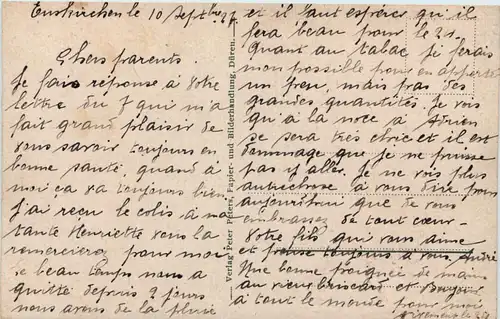 Euskirchen le 10 Septbre
Chers parents.
Je fais réponse à Votre
lettre du 7 qui m'a
fait grand plaisir de
vous savoir toujours en
bonne santé, quand à
moi ca va toujours bien
j'ai reçu le colis à ma
tante Henriette vous la
remercierez, pour moi
le beau temps nous a
quitté depuis 2 jours
nous avons de la pluie
Verlag Peter Peters, Papier- und Bilderhandlung, Düren.
et il faut espérer qu'il
fera beau pour le 21.
Quant au tabac je ferais
mon possible pour en apporter
un peu, mais pas des
grandes quantités. Je vois
qu'à la noce à Adrien
se sera très chic et il est
dommage que je ne puisse
pas y aller. Je ne vois plus
autrechose à vous dire pour
aujourd'hui que de vous
embrassez de tout cœur
Votre fils qui vous aime
et pense toujours à vous, André
Une bonne poignée de main
au vieux briscard et
à tout le monde pour moi